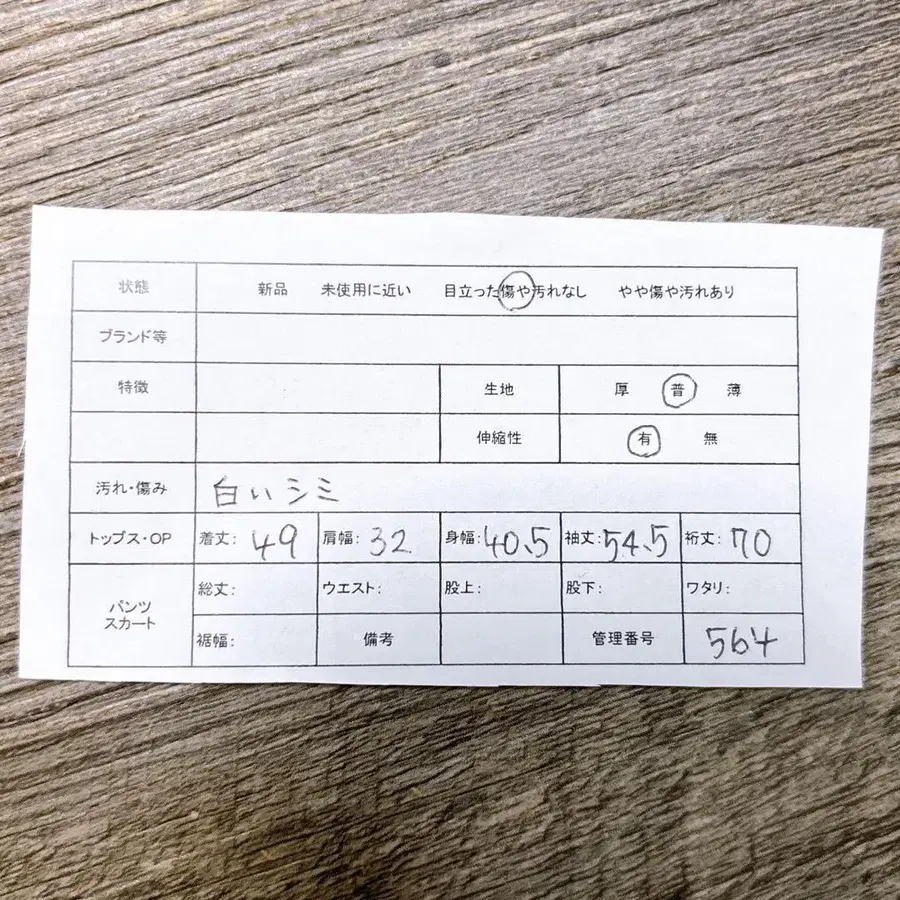 状態 新品 未使用に近い 目立った傷や汚れなし やや傷や汚れあり
ブランド等
特徴 生地 厚 普 薄
伸縮性 有 無
汚れ・傷み 白いシミ
トップス・OP 着丈: 49 肩幅: 32 身幅: 40.5 袖丈: 54.5 裄丈: 70
パンツ スカート 総丈: ウエスト: 股上: 股下: ワタリ:
裾幅: 備考 管理番号 564